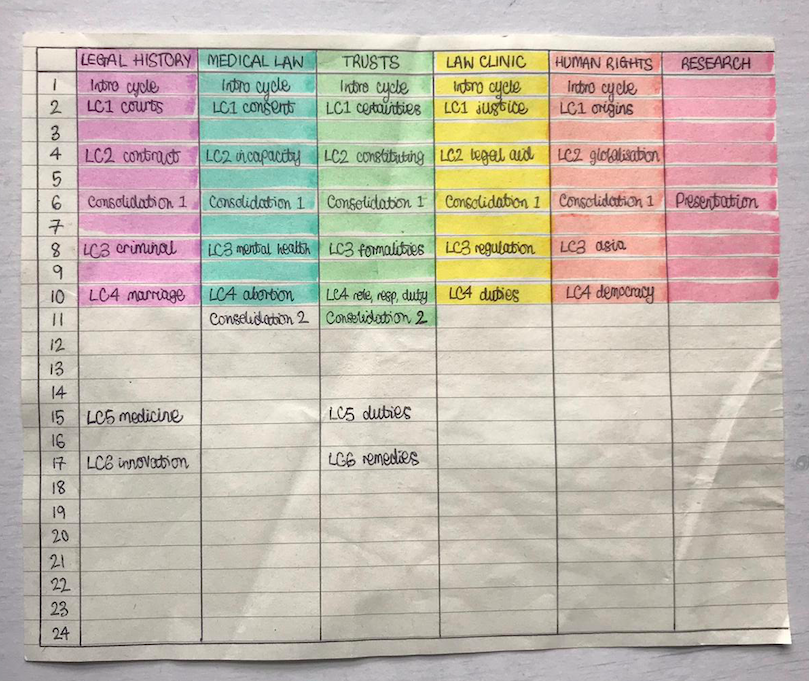 LEGAL HISTORY MEDICAL LAW TRUSTS LAW CLINIC HUMAN RIGHTS RESEARCH
1 Intro cycle Intro cycle Intro cycle Intro cycle Intro cycle
2 LC1 courts LC1 consent LC1 certainties LC1 justice LC1 origins
3
4 LC2 contract LC2 incapacity LC2 constituting LC2 legal aid LC2 globalisation
5
6 Consolidation 1 Consolidation 1 Consolidation 1 Consolidation 1 Consolidation 1 Presentation
7
8 LC3 criminal LC3 mental health LC3 formalities LC3 regulation LC3 asia
9
10 LC4 marriage LC4 abortion LC4 role, resp, duty LC4 duties LC4 democracy
11 Consolidation 2 Consolidation 2
12
13
14
15 LC5 medicine LC5 duties
16
17 LC6 innovation LC6 remedies
18
19
20
21
22
23
24